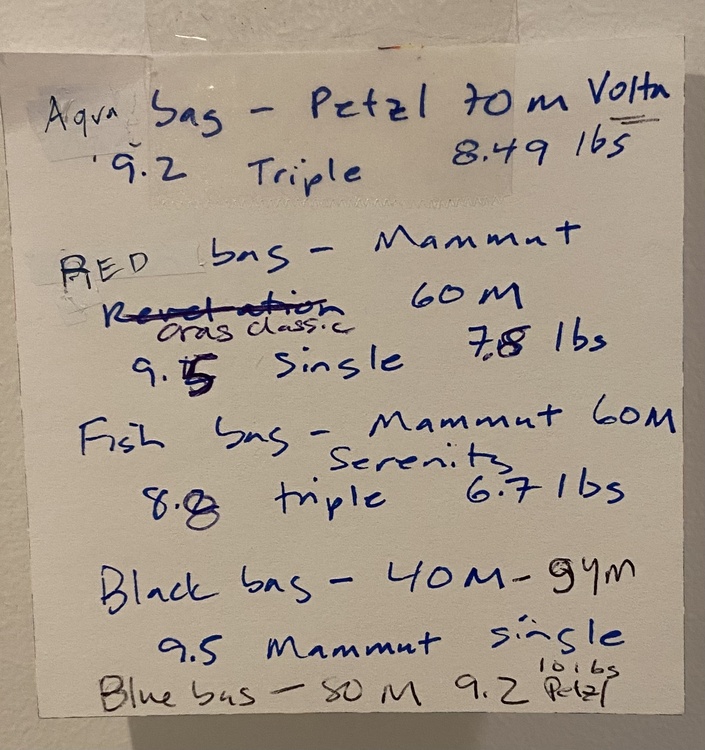 Aqua bag - Petzl 70 m Volta
9.2 Triple 8.49 lbs
RED bag - Mammut
Revelation 60 M
Crag classic
9.5 single 7.8 lbs
Fish bag - Mammut 60M
Serenity
8.8 triple 6.7 lbs
Black bag - 40M - gym
9.5 Mammut single
10 lbs
Blue bag - 80 M 9.2 Petzl